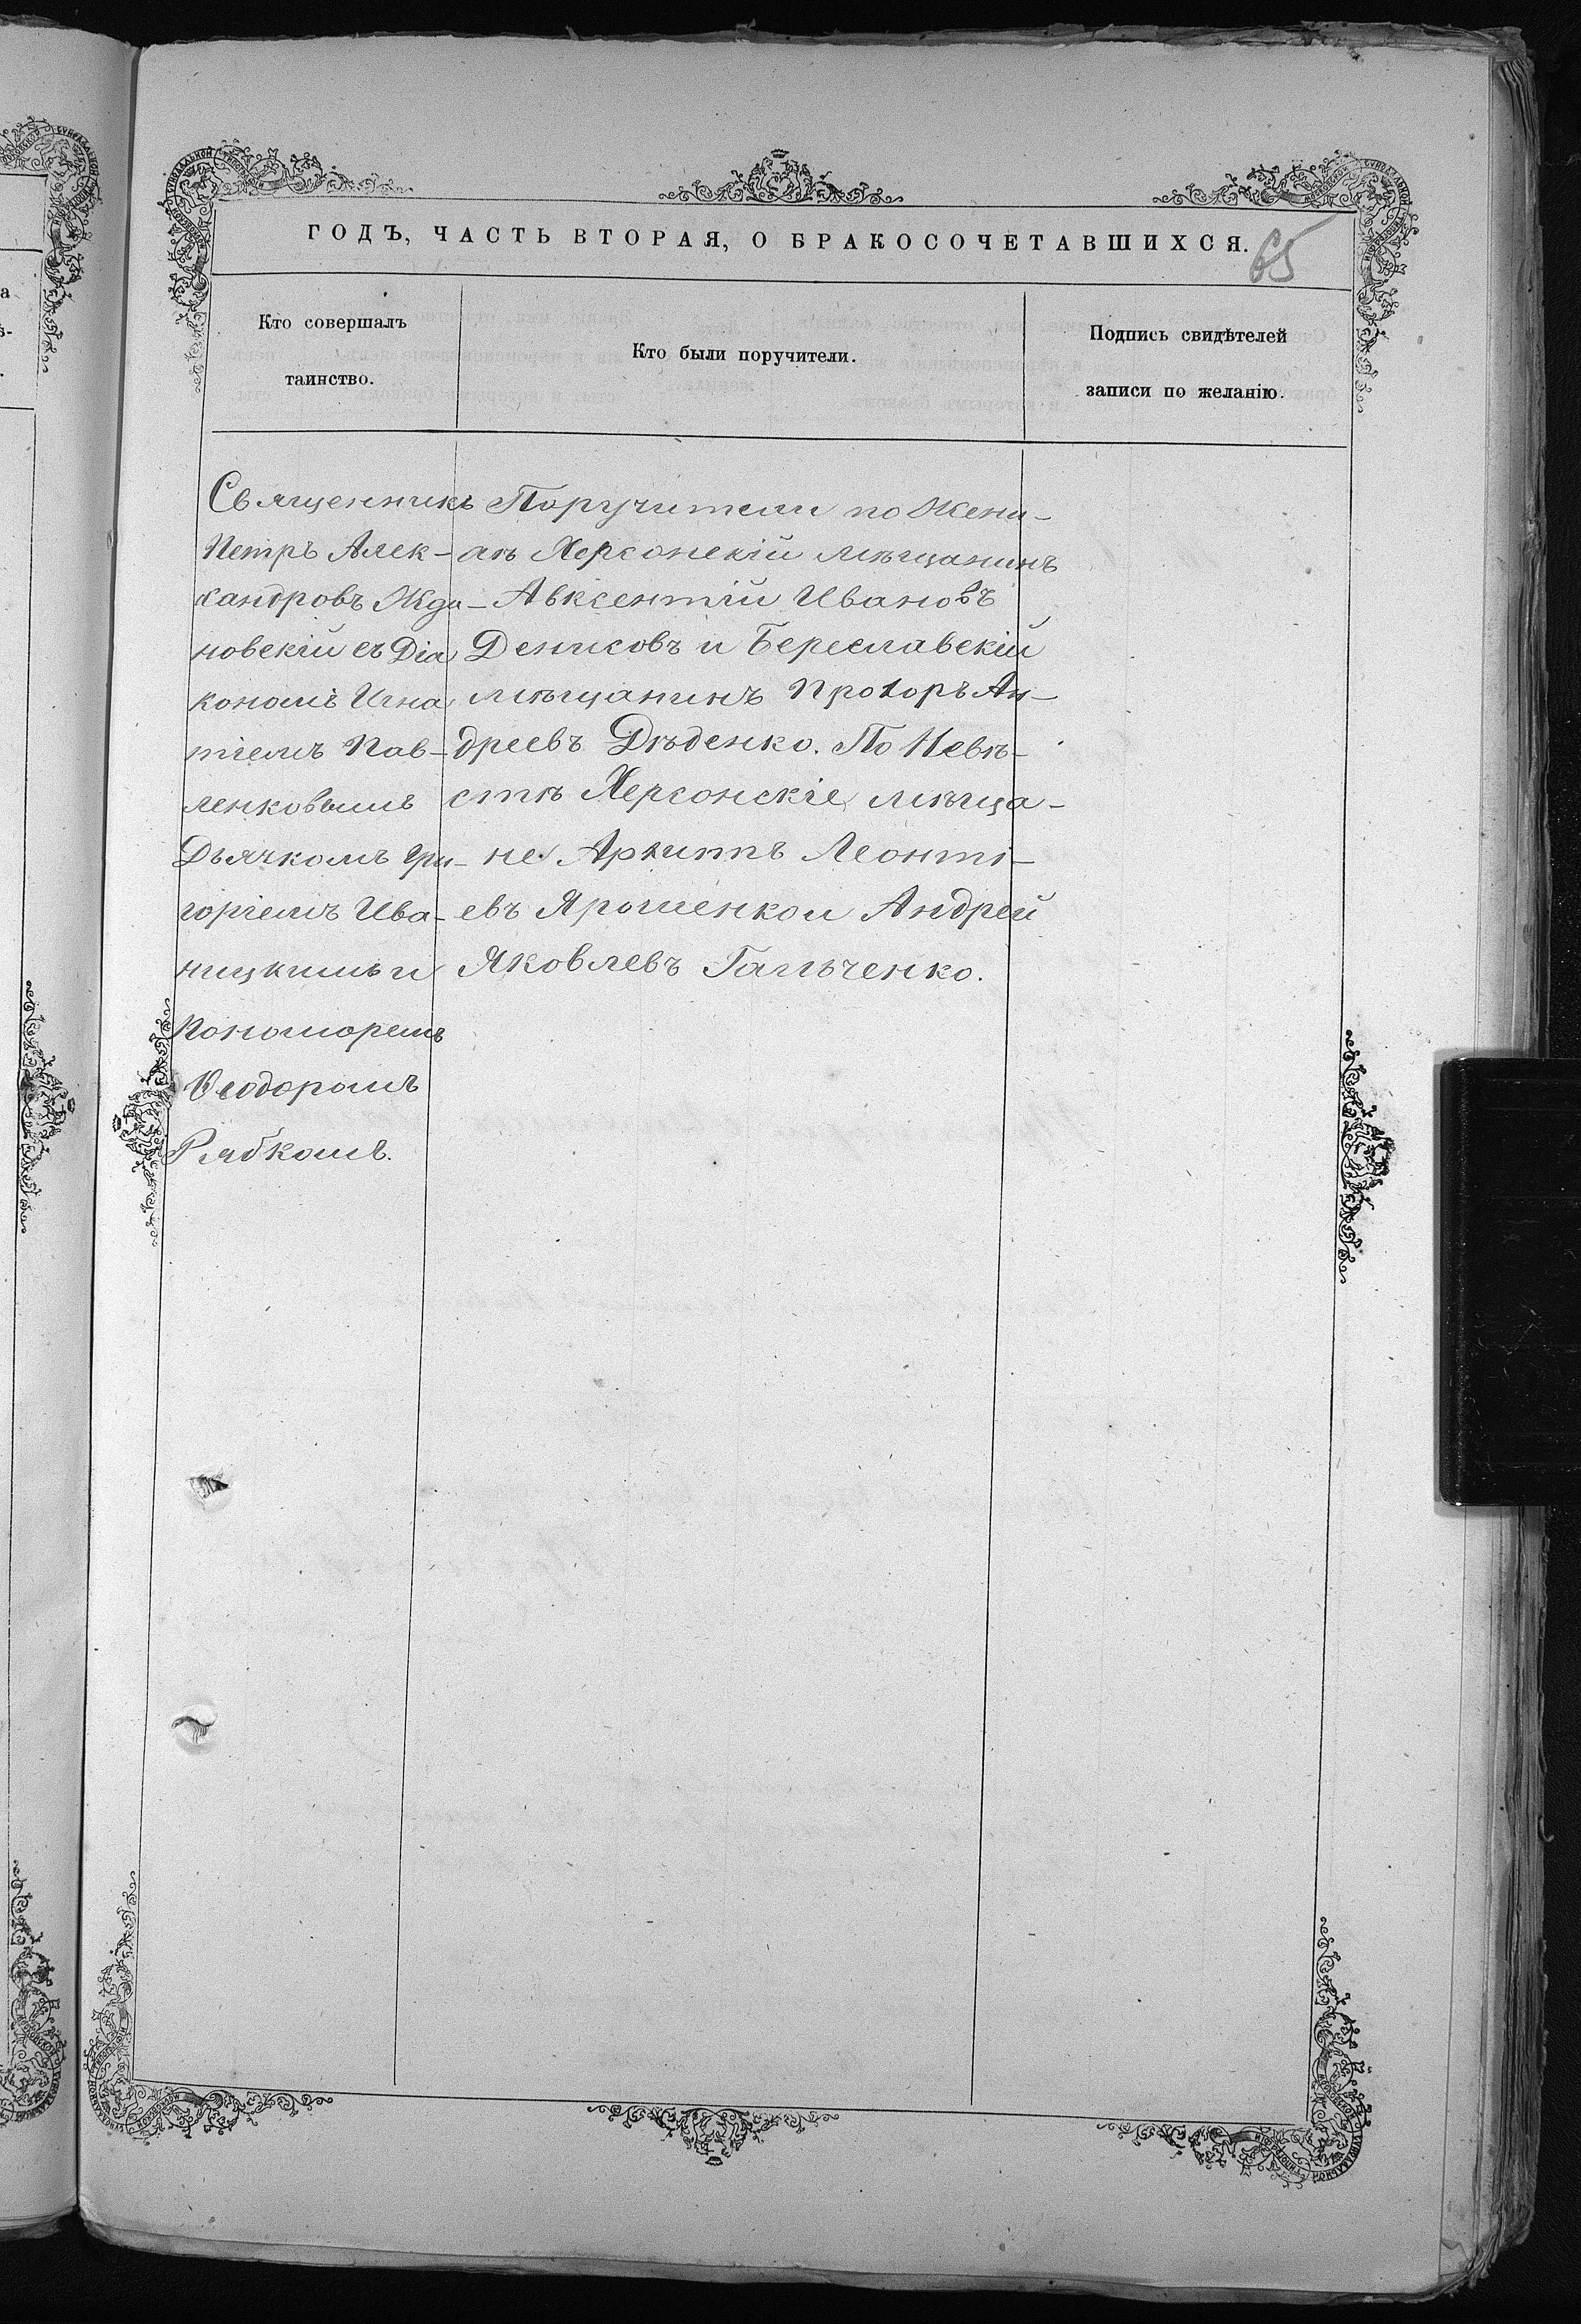 ГОДЪ, ЧАСТЬ ВТОРАЯ, О БРАКОСОЧЕТАВШИХСЯ.
65
Кто совершалъ
таинство.
Кто были поручители.
Подпись свидѣтелей
записи по желанію.
Священникъ
Петръ Алек-
сандровъ Жда-
новскій съ Діа
кономъ Игна
тіемъ Пав-
ленковымъ
Дьячкомъ Гри-
горіемъ Ива-
ницкимъ и
Пономоремъ
Ѳеодоромъ
Рябкомъ.
Поручители по Жени-
хѣ Херсонскій мѣщанинъ
Авксентій Ивановъ
Денисовъ и Береславскій
мѣщанинъ Прохоръ Ан-
дреевъ Дѣденко. По Невѣ-
стѣ Херсонскіе мѣща-
не Архиппъ Леонті-
евъ Ярошенко и Андрей
Яковлевъ Гальченко.